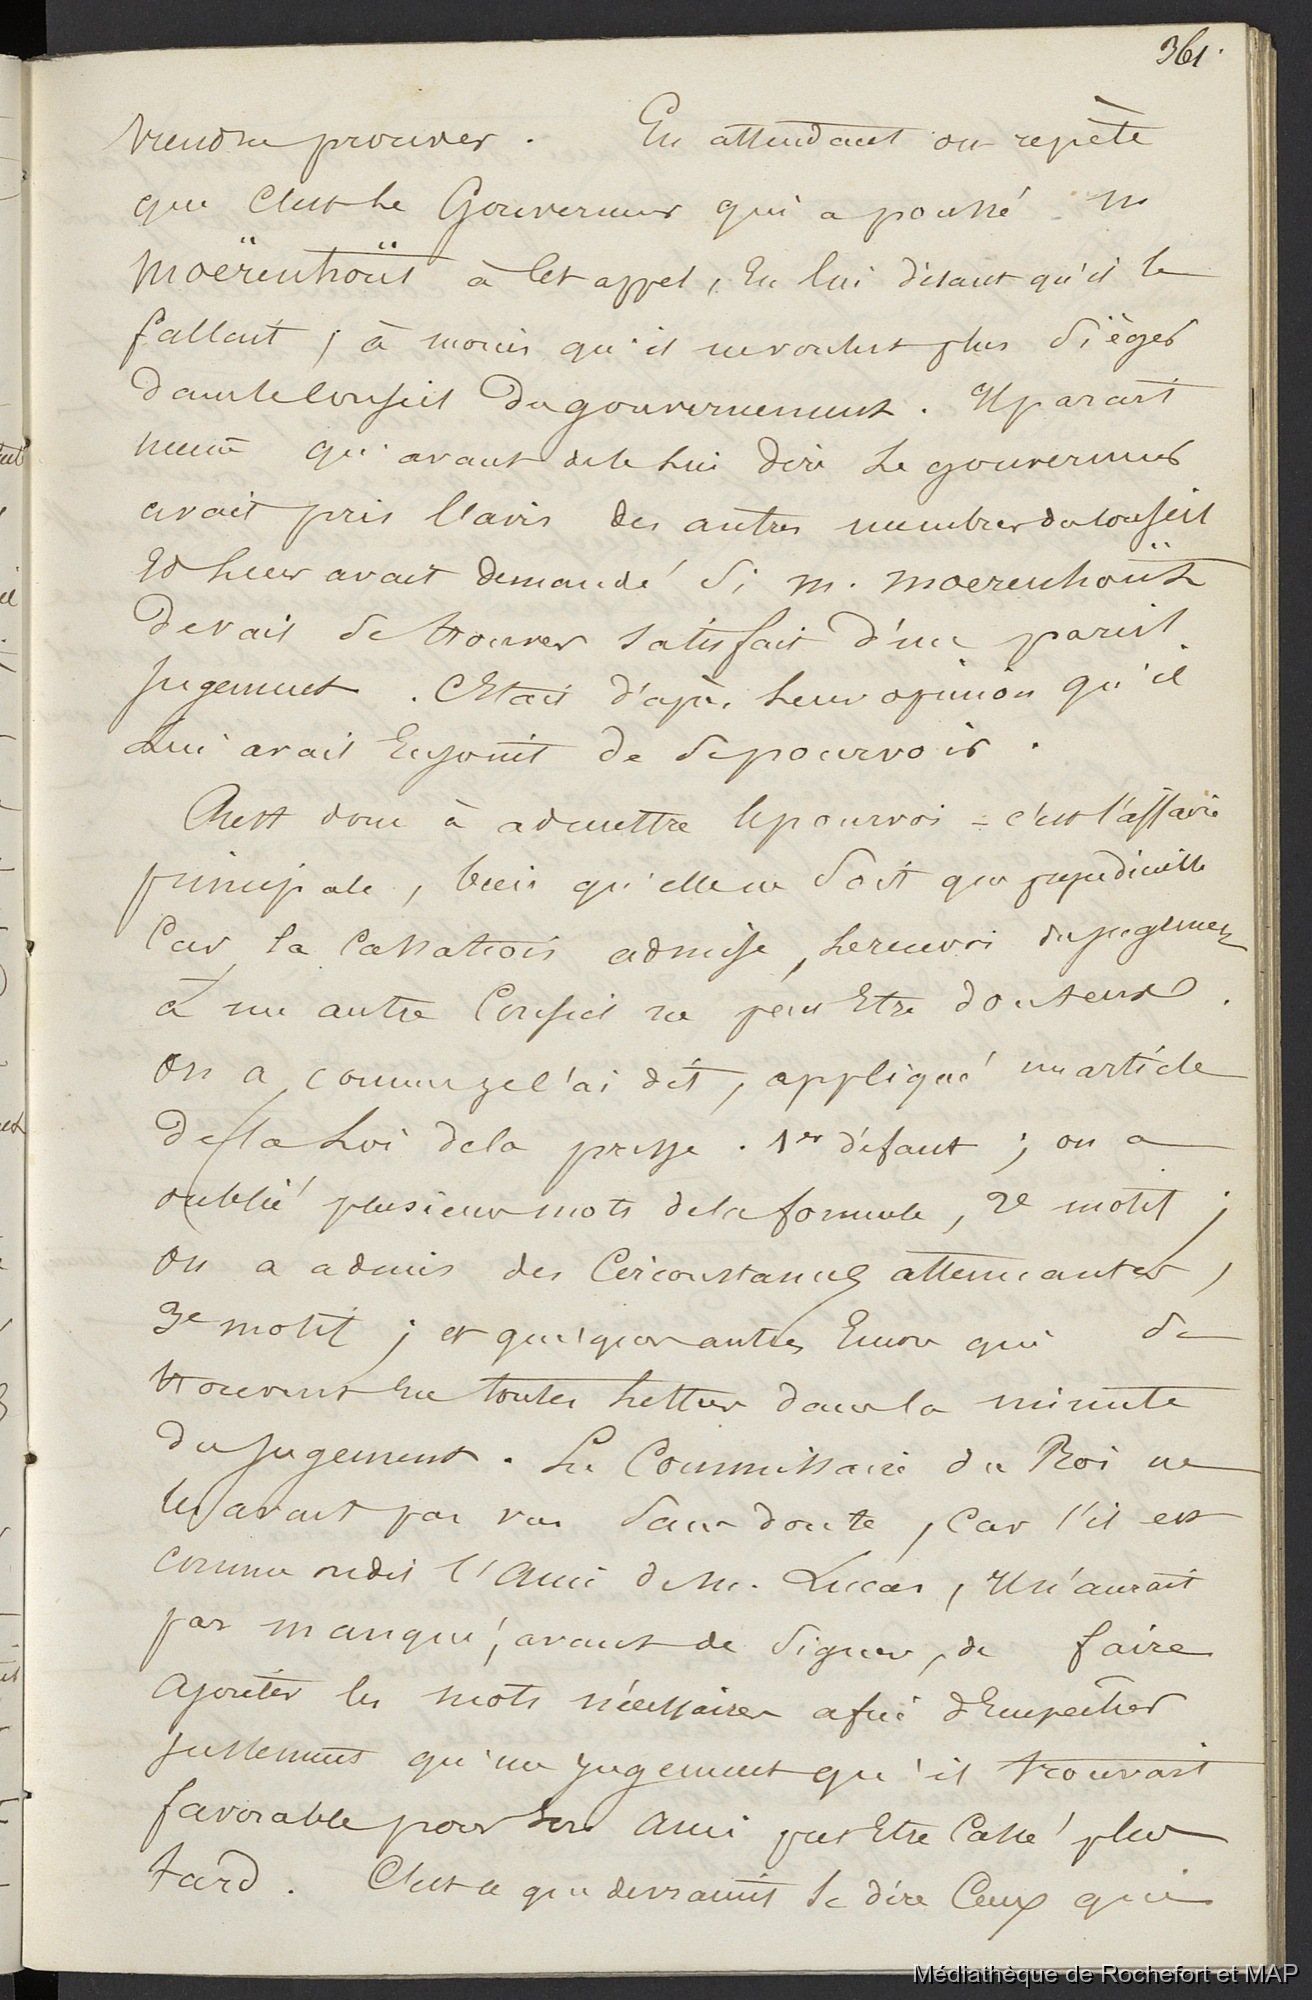 361.
viendra prouver. En attendant on repète
que C'est Le Gouverneur qui a poussé M
Moërenhoüt à Cet appel, En lui disant qu'il le
fallait, à moins qu'il ne voulut plus Siéger
dans le Conseil Du gouvernement. Il parait
même qu'avant de le Lui dire Le gouverneur
avait pris l'avis des autres membres du Conseil
Et Leur avait demandé Si M. Moerenhoüt
Devait Se trouver Satisfait d'un pareil
Jugement. C'Etait d'après Leur opinion qu'il
Lui avait Enjoint de Se pourvoir.
C'est donc à admettre le pourvoi = c'est l'affaire
principale, bien qu'elle ne Soit que prejudicielle
Car la Cassation admise, Le renvoi du jugement
à un autre Conseil ne peut Etre douteux.
On a, comme je l'ai dit, appliqué un article
De la Loi de la presse. 1er défaut; on a
oublié plusieurs mots de la formule, 2e motif;
On a admis des Circonstances attenuantes,
3e motif; et quelques autres Encore qui Se
trouvent En toutes Lettres dans la minute
Du Jugement. Le Commissaire du Roi ne
les avait pas vus Sans doute, Car s'il est
comme on dit l'Ami de M. Lucas, Il n'aurait
pas manqué, avant de Signer, de faire
Ajouter les mots nécessaires afin d'Empecher
justement qu'un Jugement qu'il trouvait
favorable pour Son Ami put Etre Cassé plus
tard. C'est ce que devraient Se dire Ceux qui
Médiathèque de Rochefort et MAP